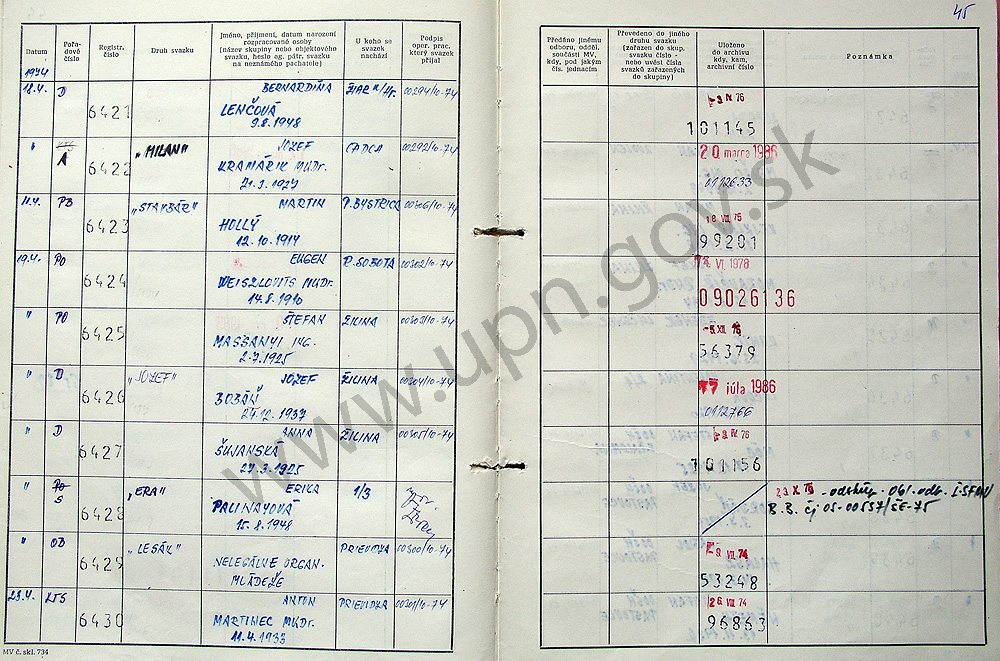 45
Datum
Pořa-
dové
číslo
Registr.
číslo
Druh svazku
Jméno, příjmení, datum narození
rozpracované osoby
(název skupiny nebo objektového
svazku, heslo ag. pátr. svazku
na neznámého pachatele)
U koho se
svazek
nachází
Podpis
oper. prac.
který svazek
přijal
Předáno jinému
odboru, odděl.
součásti MV,
kdy, pod jakým
čís. jednacím
Převedeno do jiného
druhu svazku
(zařazen do skup.
svazku číslo -
nebo uvést čísla
svazků zařazených
do skupiny)
Uloženo
do archivu
kdy, kam,
archivní číslo
Poznámka
1974
18.4. D 6421 BERNARDÍNA ŽIAR n/Hr. 00294/10-74
LENČOVÁ
9.8.1948
76
101145
" A 6422 "MILAN" JOZEF ČADCA 00292/10-74
KRAMÁRIK MUDr.
1927
20 marca 1986
0112633
PB 6423 MARTIN P. BYSTRICA 00306/10-74
HOLLÝ
12.10.1914
18 VII. 75
99201
19.4. PO 6424 EUGEN R. SOBOTA 00302/10-74
WEISZLOVITS MUDr.
14.8.1910
VI. 1978
09026136
" PO 6425 ŠTEFAN ŽILINA 00303/10-74
MASSANYI ING.
2.7.1925
XII. 76
56379
" D 6426 "JOZEF" JOZEF ŽILINA 00304/10-74
BOBÁŇ
24.12.1937
17 júla 1986
0112766
" D 6427 ANNA ŽILINA 00305/10-74
ŠUJANSKÁ
27.3.1925
76
101156
" PO S 6428 "ERA" ERIKA 1/3
PALINAYOVÁ
15.8.1948
23 X. 75
B.B. čj 05-00537/ŠE-75
" OB 6429 "LESÁK" PRIEVIDZA 00300/10-74
NELEGÁLNE ORGAN.
MLÁDEŽE
VII. 74
53248
23.4. KTS 6430 ANTON PRIEVIDZA 00301/10-74
MARTINEC MUDr.
11.4.1933
26 VII. 74
96863
MV č. skl. 734
www.upn.gov.sk